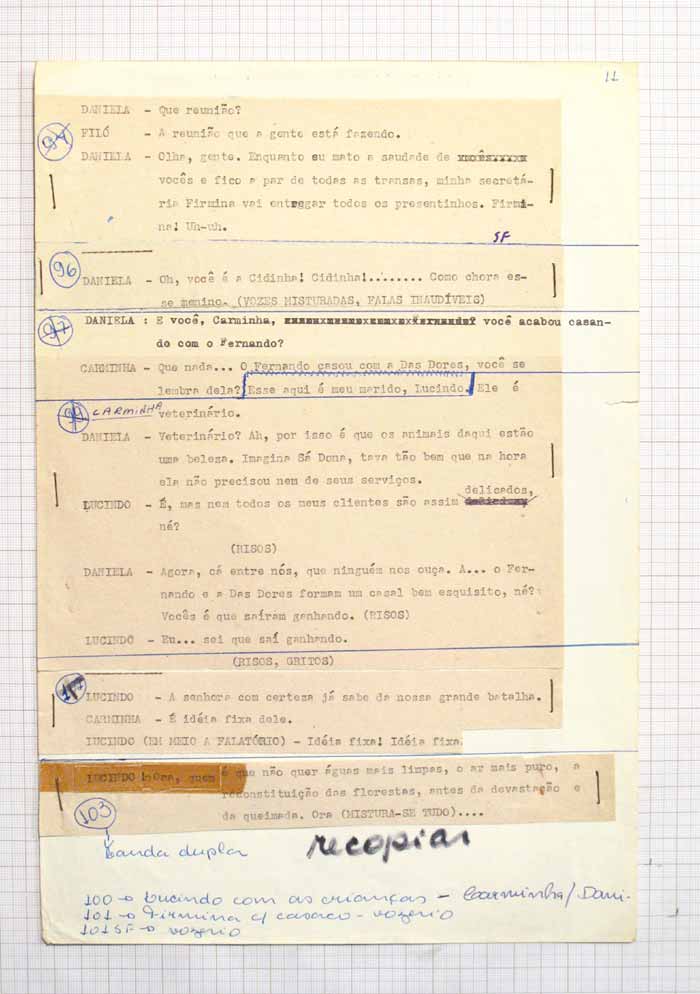 11
DANIELA - Que reunião?
94
FILÓ - A reunião que a gente está fazendo.
DANIELA - Olha, gente. Enquanto eu mato a saudade de
vocês e fico a par de todas as transas, minha secretá-
ria Firmina vai entregar todos os presentinhos. Firmi-
na! Uh-uh.
SF
96
DANIELA - Oh, você é a Cidinha! Cidinha!........ Como chora es-
se menino. (VOZES MISTURADAS, FALAS INAUDÍVEIS)
97
DANIELA : E você, Carminha, você acabou casan-
do com o Fernando?
CARMINHA - Que nada... O Fernando casou com a Das Dores, você se
lembra dela? Esse aqui é meu marido, Lucindo. Ele é
CARMINHA veterinário.
DANIELA - Veterinário? Ah, por isso é que os animais daqui estão
uma beleza. Imagina Sá Dona, tava tão bem que na hora
ela não precisou nem de seus serviços.
delicados,
LUCINDO - É, mas nem todos os meus clientes são assim
né?
(RISOS)
DANIELA - Agora, cá entre nós, que ninguém nos ouça. A... o Fer-
nando e a Das Dores formam um casal bem esquisito, né?
Vocês é que saíram ganhando. (RISOS)
LUCINDO - Eu... sei que saí ganhando.
(RISOS, GRITOS)
LUCINDO - A senhora com certeza já sabe da nossa grande batalha.
CARMINHA - É idéia fixa dele.
LUCINDO (EM MEIO A FALATÓRIO) - Idéia fixa! Idéia fixa.
LUCINDO - Ora, quem é que não quer águas mais limpas, o ar mais puro, a
reconstituição das florestas, antes da devastação e
da queimada. Ora (MISTURA-SE TUDO)....
103
banda dupla
recopiar
100 → Lucindo com as crianças - Carminha/Dani.
101 → Firmina c/ casaco - vozerio
101SF → vozerio